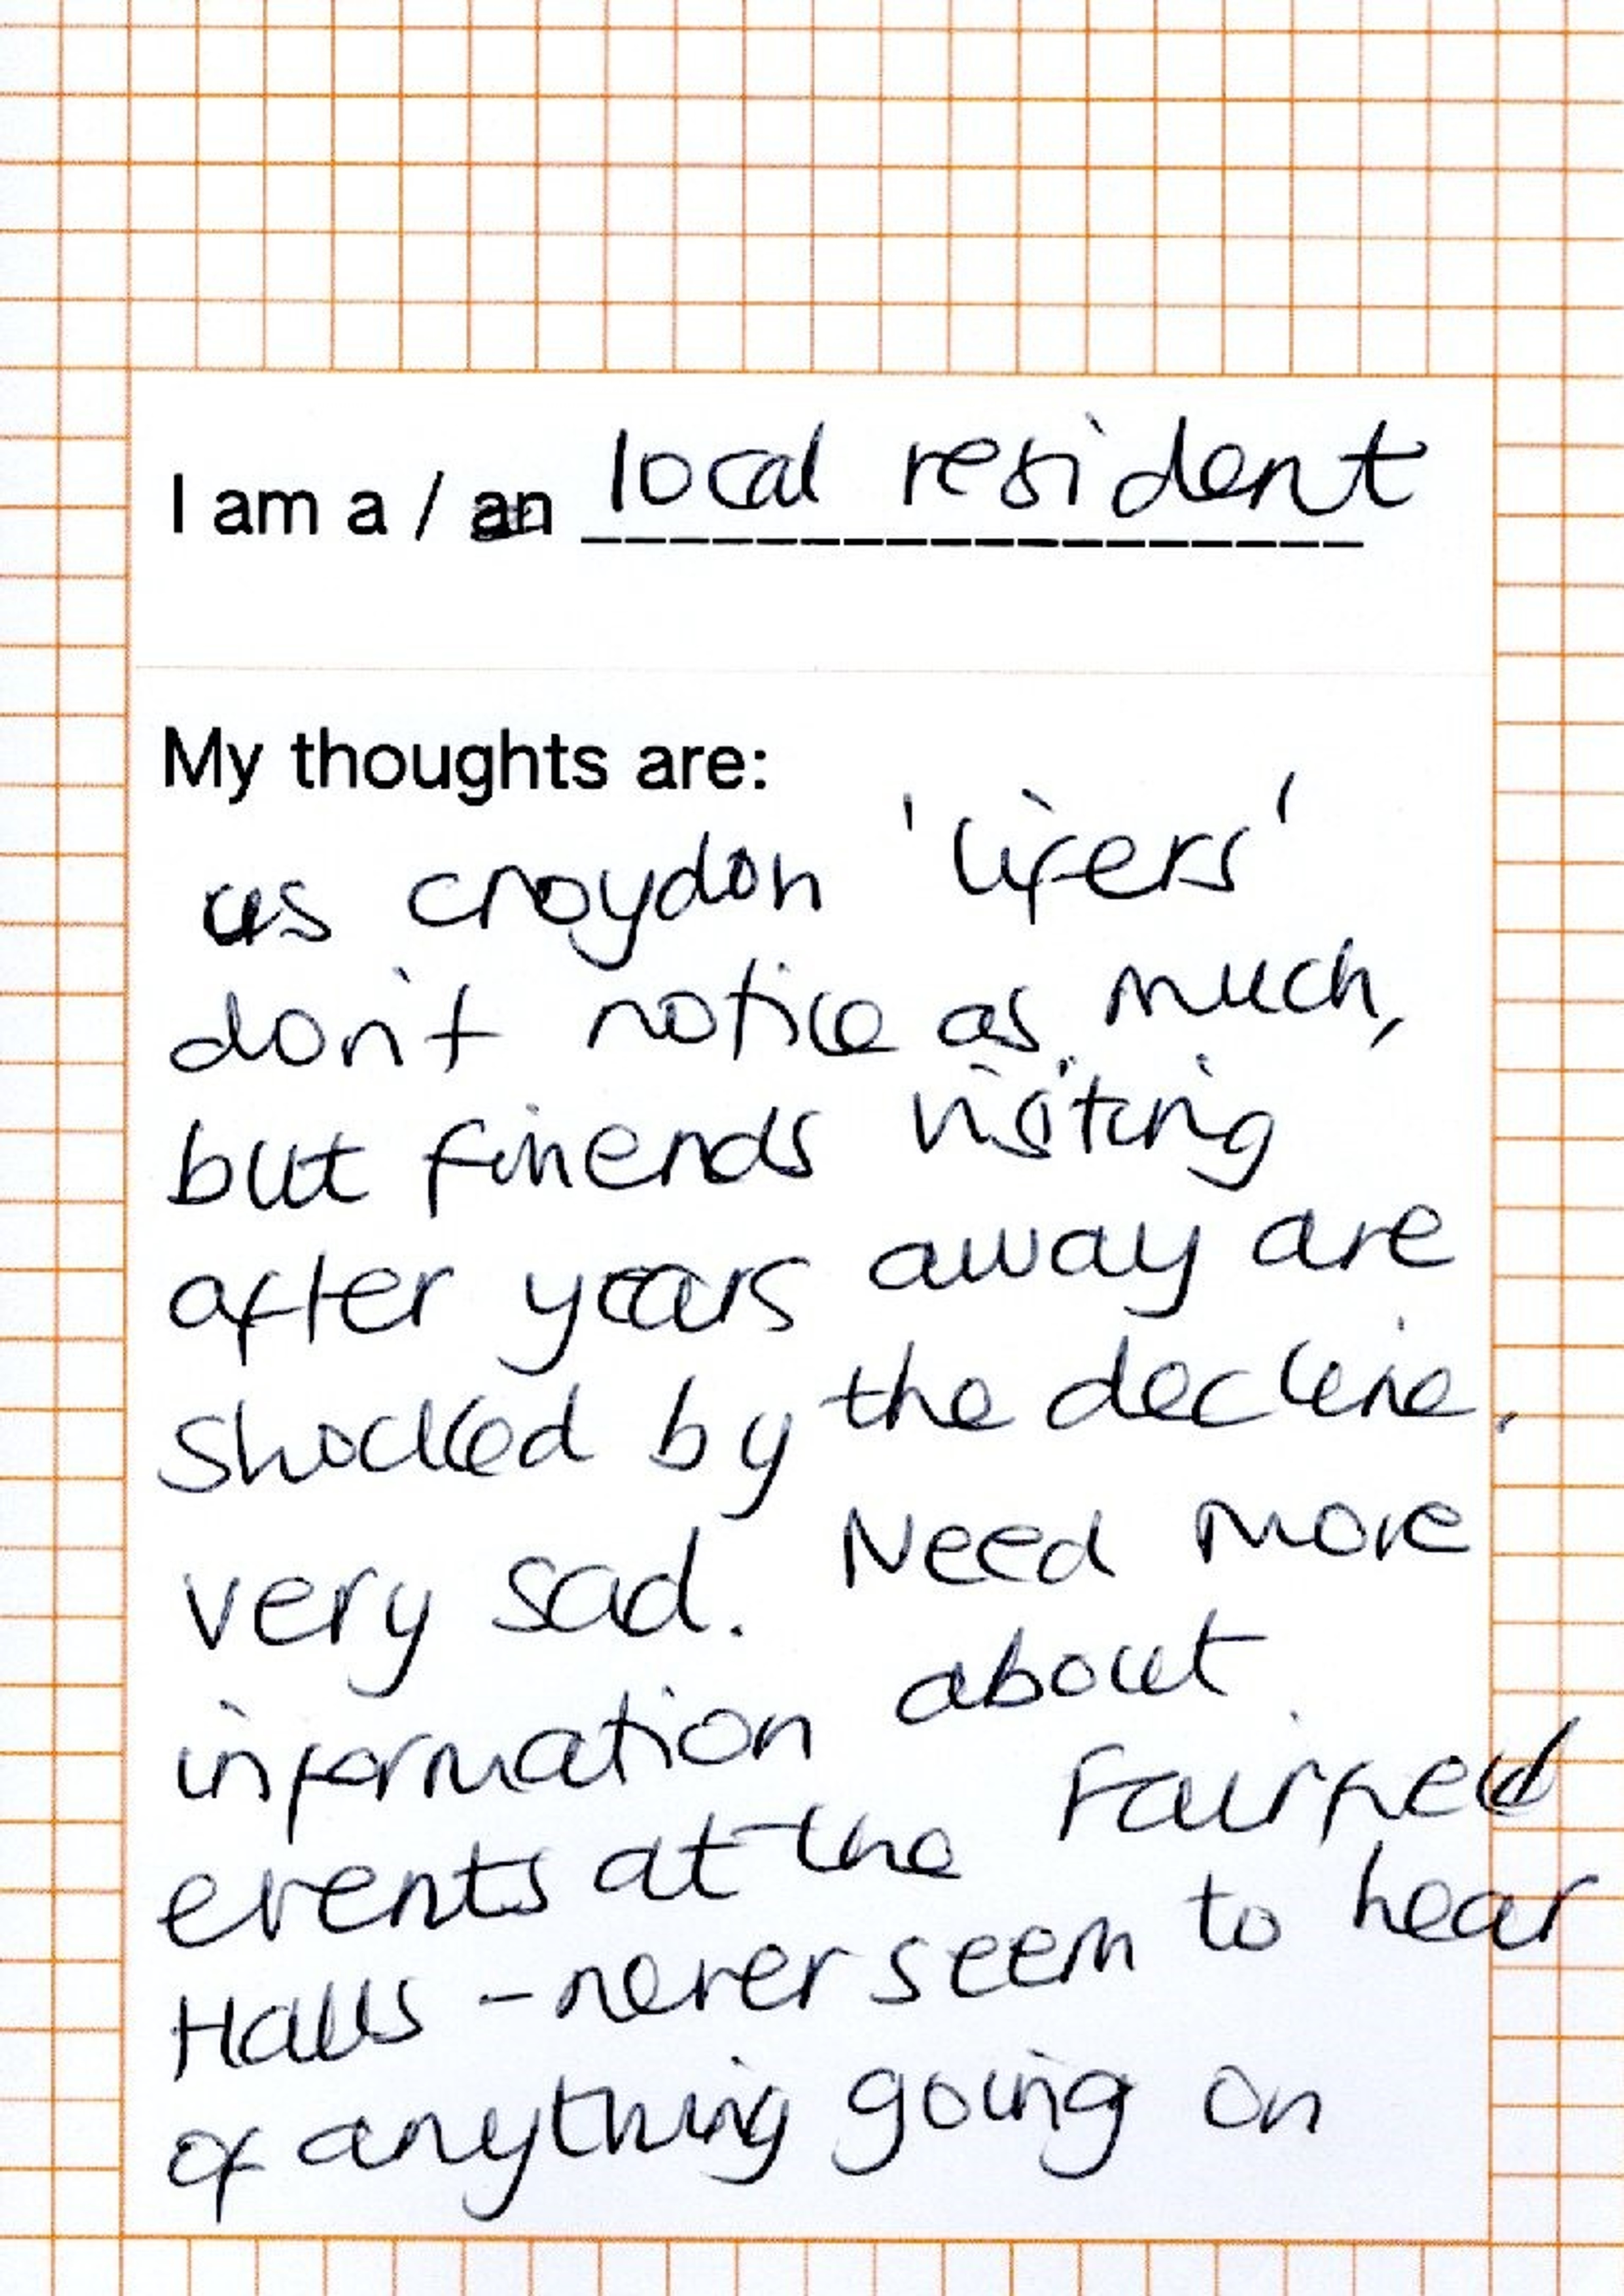 I am a / an local resident
My thoughts are:
us croydon 'lifers'
don't notice as much,
but friends visiting
after years away are
shocked by the decline.
very sad. Need more
information about
events at the Fairfield
Halls - never seem to hear
of anything going on